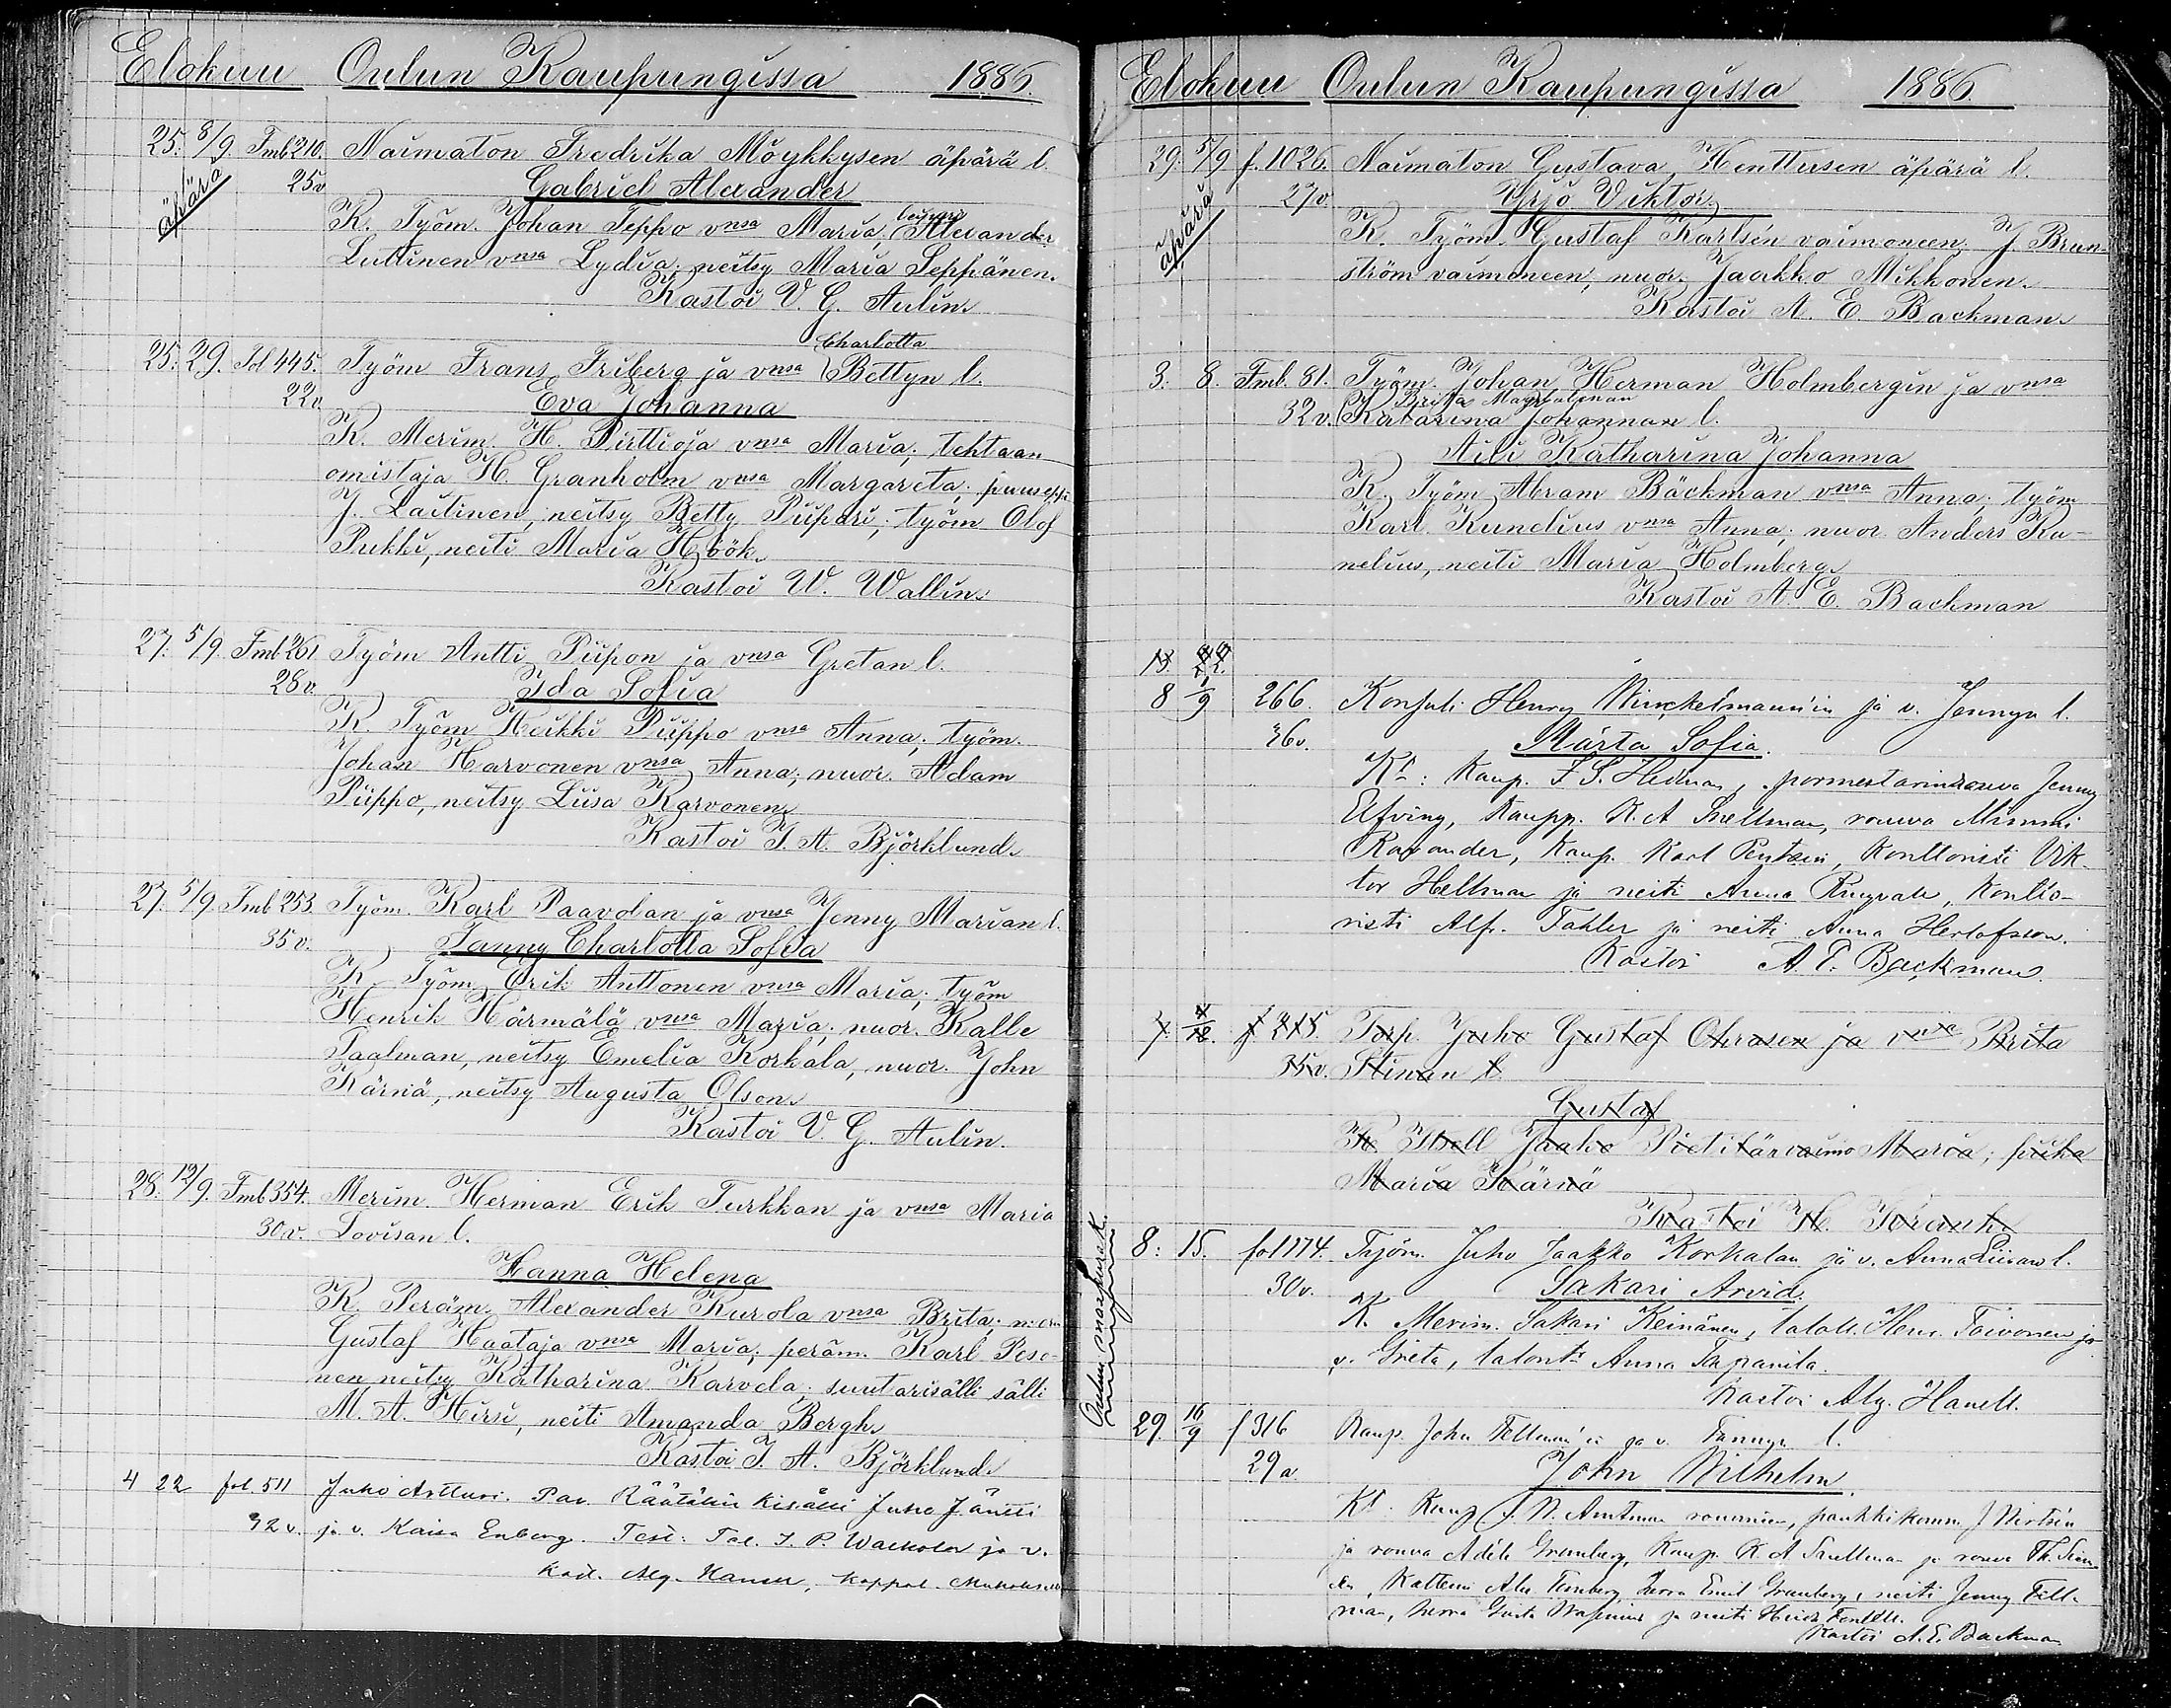 Elokuu Oulun Kaupungissa 1886.
25. 8/9. Fmb 210. Naimaton Fredrika Möykkysen äpärä l.
äpärä 25v Gabriel Alexander
K. Työm. Johan Teppo vnsa Maria; leipuri Alexander
Luttinen vnsa Lydia; neitsy Maria Seppänen.
Kastoi V. G. Aulin.
Charlotta
25. 29. Fol 445. Työm Frans Friberg ja vnsa Bettyn l.
22v. Eva Johanna
K. Merim. H. Pirttioja vnsa Maria; tehtaan
omistaja H. Granholm vnsa Margareta; puuseppä
J. Laitinen, neitsy Betty Piipari; työm Olof
Pukki, neiti Maria Höök.
Kastoi W. Wallin.
27. 5/9. Fmb 261 Työm Antti Piipon ja vnsa Gretan l.
28v. Ida Sofia
K. Työm Heikki Piippo vnsa Anna; työm.
Johan Karvonen vnsa Anna; nuor. Adam
Piippo, neitsy Liisa Karvonen.
Kastoi J. A. Björklund.
27. 5/9. Fmb 253. Työm. Karl Paavolan ja vnsa Jenny Marian l.
35v. Fanny Charlotta Sofia
K. Työm. Erik Anttonen vnsa Maria; työm
Henrik Härmälä vnsa Maria; nuor. Kalle
Paalman, neitsy Emelia Korkala, nuor. John
Kärnä, neitsy Augusta Olson.
Kastoi V. G. Aulin.
28. 12/9. Fmb 354. Merim. Herman Erik Turkkan ja vnsa Maria
30v. Lovisan l.
Hanna Helena
K. Peräm. Alexander Kurola vnsa Brita;
Gustaf Haataja vnsa Maria; peräm. Karl Peso-
nen neitsy Katharina Karvela; suutarisälli sälli
M. A. Hirsi, neiti Amanda Bergh.
Kastoi J. A. Björklund.
4 22 fol. 511 Juho Artturi. Räätälin kisälli Juho Jäntti
32v. ja v. Kaisa Enberg. Test: Tal. J. P. ja v.
Kast. Alg. Hanell, Kappal.
Elokuu Oulun Kaupungissa 1886.
29. 5/9 f. 1026. Naimaton Gustava Henttusen äpärä l.
äpärä 27v. Yrjö Viktor.
K. Työm. Gustaf Karlsin vaimoneen; J. Brun-
ström vaimoneen; nuor. Jaakko Mikkonen.
Kastoi A. E. Backman.
3. 8. Fmb. 81. Työm. Johan Herman Holmbergin ja vnsa
Brita Magdalenan
32v. Katarina Johannan l.
Aili Katharina Johanna
K. Työm Abram Bäckman vnsa Anna; työm
Karl Kunelius vnsa Anna; nuor. Anders Ku-
nelius, neiti Maria Holmberg.
Kastoi A. E. Backman
13.
8 1/9 266. Konsuli Henry Winckelmann'in ja v. Jennyn l.
36v. Märta Sofia.
Kt: Kaup. F. S. Hedman, pormestarinrouva Jenny
Elfving, Kaupp. K. A Snellman, rouva Mimmi
Ravander, Kaup. Karl Pentzin, Konttoristi Vik-
tor Hellman ja neiti Anna, Kontto-
risti Alf. Tahler ja neiti Anna Herlofsson.
Kastoi A. E. Backman.
7. f 215. Torp. Juho Gustaf Ohrasen ja vnsa Brita
35v. Stinan l.
Gustaf
K. Itsell Jaako Pietilä vaimo Maria; piika
Maria Kärnä
Kastoi H.
Oulun maaseurak.
8: 15. fol 1174. Työm. Juho Jaakko Korkalan ja v. Anna Liisan l.
30v. Sakari Arvid.
K. Merim. Sakari Keinänen, taloll. Henr. Toivonen ja
v. Greta, talont. Anna Tapanila.
Kastoi Alg. Hanell.
29. 16/9 f 316 Kaup. John Fellman'in ja v. Fannyn l.
29a. John Wilhelm.
Kt. Kaup J. W. rouvineen, pankkikomm. J
ja rouva Adèle Granberg, Kaup. K. A Snellman ja rouva
Herra Emil Granberg, neiti Jenny Fell-
man, herra ja neiti
Kastoi A. E. Backman